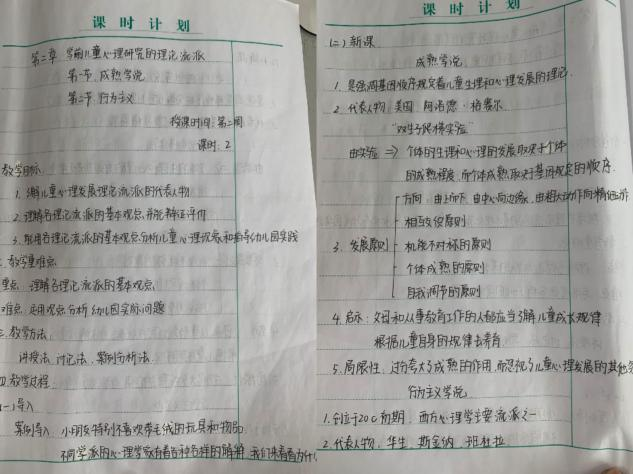 课时计划
第二章 学前儿童心理研究的理论流派
第一节 成熟学说
第二节 行为主义
授课时间:第二周
课时:2
教学目标
1. 了解儿童心理发展理论流派的代表人物
2. 理解各理论流派的基本观点,并能辩证评价
3. 能用各理论流派的基本观点分析儿童心理现象和指导幼儿园实践
二、教学重难点
重点:理解各理论流派的基本观点
难点:运用观点分析幼儿园实际问题
三、教学方法
讲授法、讨论法、案例分析法
四、教学过程
(一)导入
案例导入:小朋友特别不喜欢带毛绒的玩具和物品.
不同学派的心理学家有着各种各样的解释,我们来看看为什
课时计划
(二)新课
成熟学说
1. 是强调基因顺序规定着儿童生理和心理发展的理论.
2. 代表人物:美国 阿诺德·格赛尔
"双生子爬梯实验"
由实验 ⇒ 个体的生理和心理的发展取决于个体
的成熟程度,而个体成熟取决于基因规定的顺序.
方向:由上而下、由中心向边缘、由粗大动作向精细动作
相互交织原则
3. 发展原则 机能不对称的原则
个体成熟的原则
自我调节的原则
4. 启示:父母和从事教育工作的人都应当了解儿童成长规律
根据儿童自身的规律去养育
5. 局限性:过分夸大了成熟的作用,而忽视了儿童心理发展的其他
行为主义学说
1. 创立于20c初期,西方心理学主要流派之一
2. 代表人物:华生、斯金纳、班杜拉